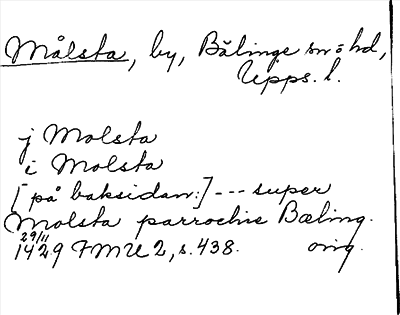 Målsta, by, Bälinge sn o hd,
Upps. l.
j Molsta
i Molsta
[på baksidan:] --- super
Molsta parrochie Bæling.
29/11
1429 FMU 2, s. 438. orig.